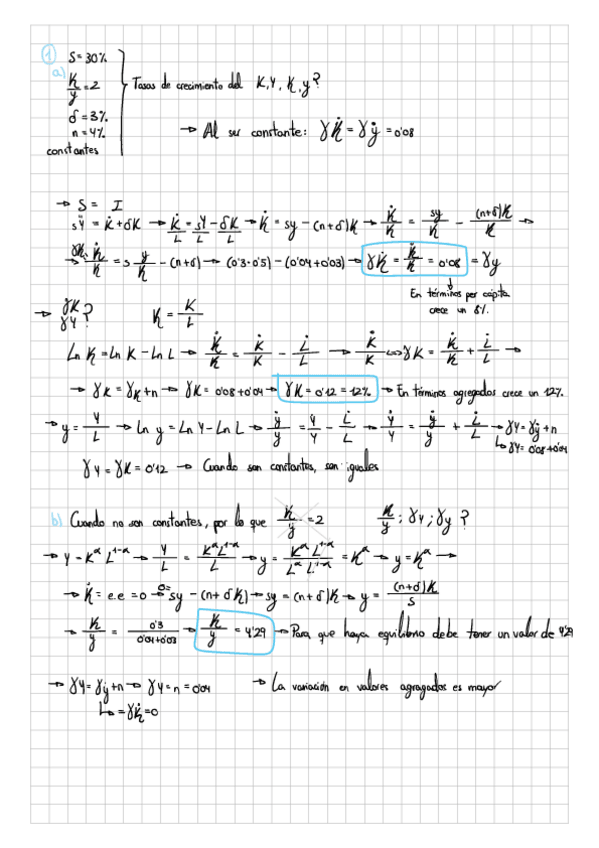 1
a)
S=30%
k/y=2
δ=3%
n=4%
constantes
Tasas de crecimiento del K,Y, k,y?
→ Al ser constante: γk̇ = γẏ = 0'08
→ S = I
sY = K̇ + δK → K̇/L = sY/L - δK/L → k̇ = sy - (n+δ)k → k̇/k = sy/k - (n+δ)k/k →
→ k̇/k = s y/k - (n+δ) → (0'3·0'5) - (0'04+0'03) → γk̇ = k̇/k = 0'08 = γy
En términos per cápita
crece un 8%.
→ γK
γY?
k = K/L
Ln k = Ln K - Ln L → k̇/k = K̇/K - L̇/L → K̇/K ⇔ γK = k̇/k + L̇/L →
→ γK = γk + n → γK = 0'08 + 0'04 → γK = 0'12 = 12% → En términos agregados crece un 12%.
→ y = Y/L → Ln y = Ln Y - Ln L → ẏ/y = Ẏ/Y - L̇/L → Ẏ/Y = ẏ/y + L̇/L → γY = γẏ + n
↳ γY = 0'08 + 0'04
γY = γK = 0'12 → Cuando son constantes, son iguales
b) Cuando no son constantes, por lo que k/y = 2 k/y ; γY ; γy ?
→ Y = K^α L^1-α → Y/L = K^α L^1-α / L → y = K^α L^1-α / L^α L^1-α = k^α → y = k^α →
→ k̇ = e.e = 0 → 0 = sy - (n+δk) → sy = (n+δ)k → y = (n+δ)k / s
→ k/y = 0'3 / 0'04+0'03 → k/y = 4'29 → Para que haya equilibrio debe tener un valor de 4'29
→ γY = γẏ + n → γY = n = 0'04 → La variación en valores agregados es mayor
↳ = γk̇ = 0